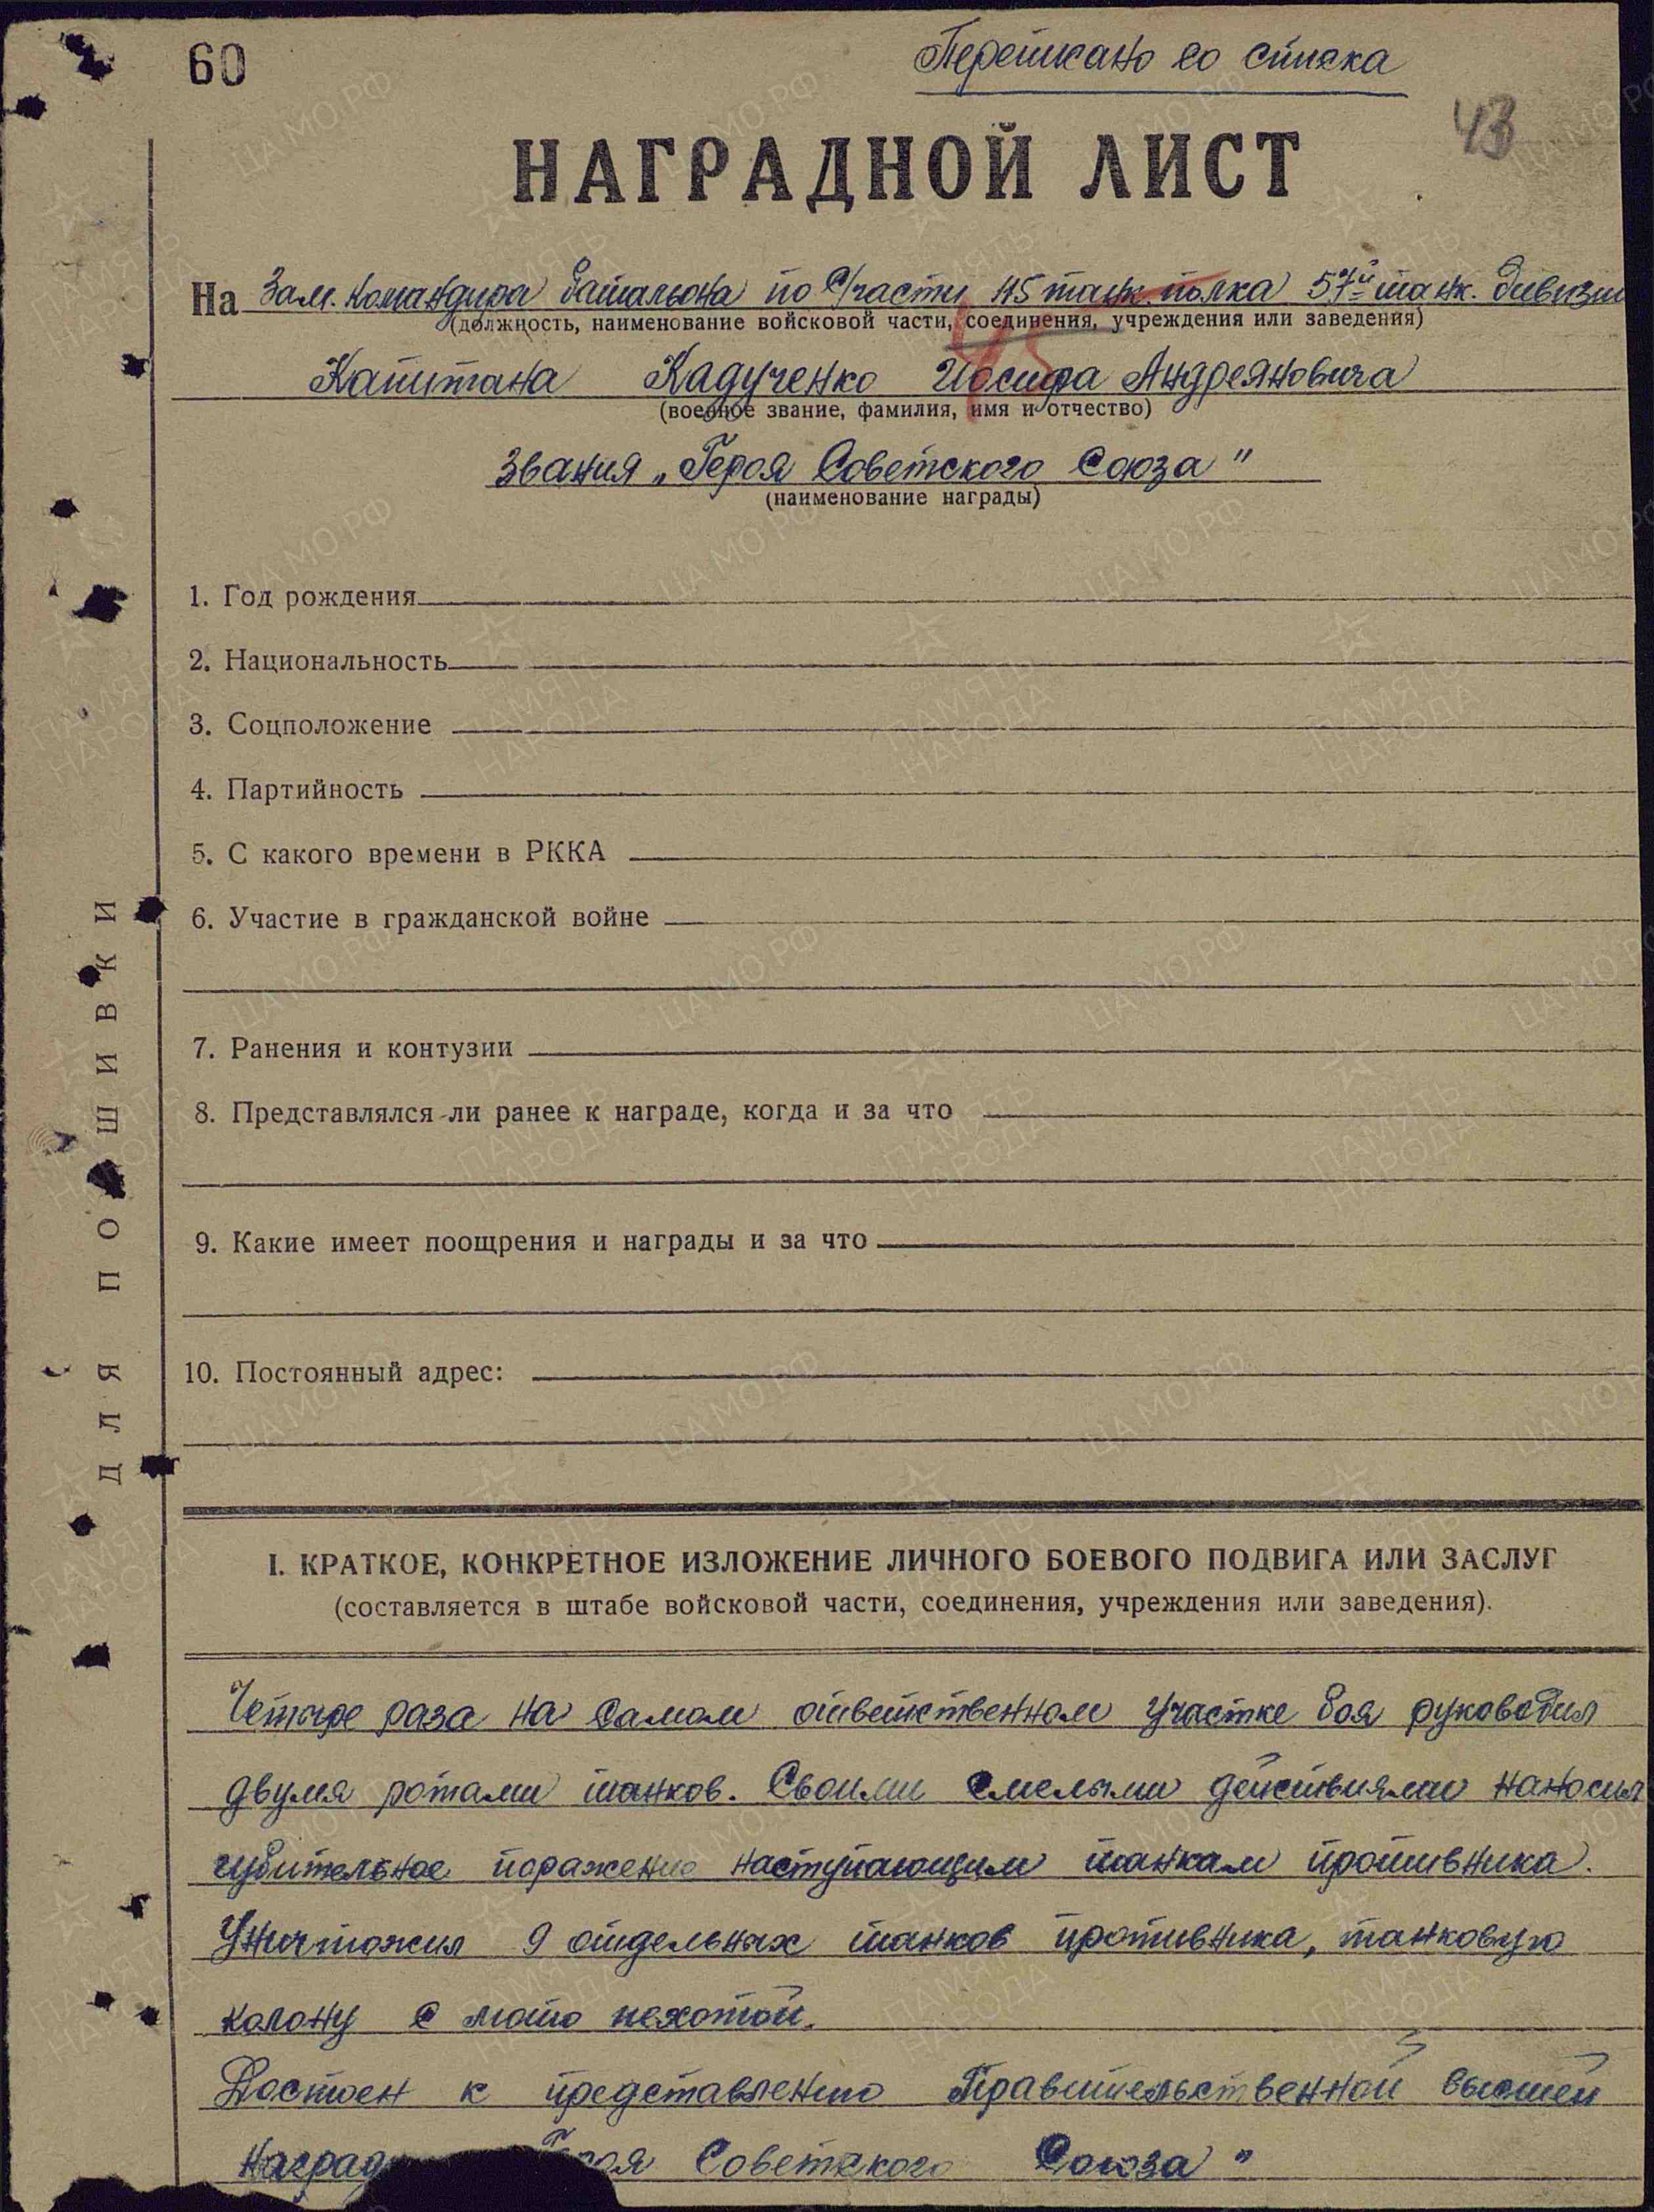 60
Переписано со списка
43
НАГРАДНОЙ ЛИСТ
На Зам. командира батальона по С/части 115 танк. полка 57й танк. дивизии
(должность, наименование войсковой части, соединения, учреждения или заведения)
Капитана Кадученко Иосифа Андреяновича
(военное звание, фамилия, имя и отчество)
звания „Героя Советского Союза"
(наименование награды)
1. Год рождения
2. Национальность
3. Соцположение
4. Партийность
5. С какого времени в РККА
6. Участие в гражданской войне
7. Ранения и контузии
8. Представлялся ли ранее к награде, когда и за что
9. Какие имеет поощрения и награды и за что
10. Постоянный адрес:
ДЛЯ ПОДШИВКИ
I. КРАТКОЕ, КОНКРЕТНОЕ ИЗЛОЖЕНИЕ ЛИЧНОГО БОЕВОГО ПОДВИГА ИЛИ ЗАСЛУГ
(составляется в штабе войсковой части, соединения, учреждения или заведения).
Четыре раза на самом ответственном участке боя руководил
двумя ротами танков. Своими смелыми действиями наносил
губительное поражение наступающим танкам противника.
Уничтожил 9 отдельных танков противника, танковую
колону с мото пехотой.
Достоен к представлению Правительственной высшей
Советского Союза"
ЦА МО.РФ
ПАМЯТЬ НАРОДА